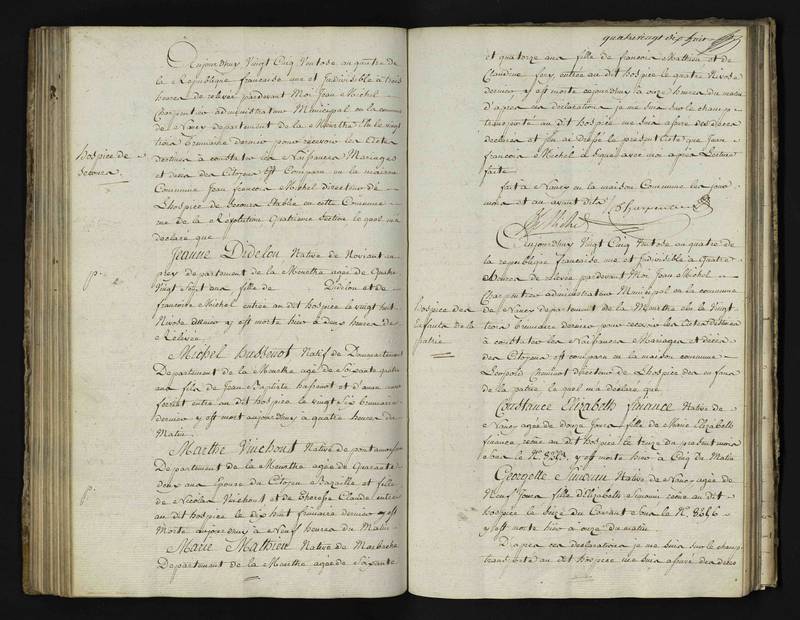 Aujourd'huy Vingt Cinq Ventose an quatre de
la Republique francaise une et Indivisible à trois
heures de relevée pardevant Moi Jean Michel
Charpentier administrateur Municipal en la com
de Nancy departement de la Meurthe elu le vingt
trois Brumaire dernier pour recevoir les Actes
destinés à constater les Naissances Mariages
et deces des Citoyens Est Comparu en la maison
Commune Jean francois Michel directeur de
L'hospice de Secours etablie en cette Commune
rue de la Revolution quatrieme Section lequel m'a
declaré que
hospice de
secours.
Jeanne Didelou Native de Noviant au
prez departement de la Meurthe agée de Quatre
Vingt Sept ans fille de Didelou et de
francoise Michel entrée au dit hospice le vingt huit
Nivose dernier y est morte hier à deux heures de
Relevée
Michel hussenot Natif de
Departement de la Meurthe agé de Soixante quatre
ans fils de Jean Baptiste hussenot et d'anne
entré au dit hospice le vingt Six brumaire
dernier y est mort aujourd'huy à quatre heures du
Matin
Marthe Vinchout Native de pont amousson
Departement de la Meurthe agée de Quarante
deux ans Epouse du Citoyen Bazaille et fille
de Nicolas Vinchout et de Therese Claude entrée
au dit hospice le dix huit frimaire dernier y est
Morte aujourd'huy à Neuf heures du Matin
Marie Mathieu Native de Marbache
Departement de la Meurthe agée de Soixante
quatrevingt dix huit
et quatorze ans fille de francois Mathieu et de
Claudine entrée au dit hospice le quatre Nivose
dernier y est morte cejourd'huy à onze heures du matin
D'apres ces declarations je me suis sur le champ
transporté au dit hospice me suis assuré des deces
declarés et j'en ai dressé le present acte que Jean
francois Michel à signé avec moi après Lecture
faite
fait à Nancy en la maison Commune les jour
mois et an avant dits
JF Michel Charpentier
Aujourd'huy Vingt Cinq Ventose an quatre de
la republique francaise une et Indivisible à Quatre
heures de Relevée pardevant Moi Jean Michel
Charpentier administrateur Municipal en la commune
de Nancy departement de la Meurthe elu le Vingt
trois Brumaire dernier pour recevoir les Actes destinés
à constater les Naissances Mariages et déces
des Citoyens est comparu en la maison commune
Leopold directeur de L'hospice des enfans
de la patrie lequel m'a déclaré que
hospice des
enfants de la
patrie
Constance Elizabeth finance Native de
Nancy agée de douze Jours fille de Marie Elizabeth
finance, au dit hospice le treize du present mois
sous le No. 8343. y est morte hier à Cinq du Matin
Georgette Simonin Native de Nancy agée de
Neuf Jours fille d'Elizabeth Simonin au dit
hospice le Seize du Courant sous le No. 8346
y est morte hier à onze du matin
D'apres ces declarations je me suis sur le champ
transporté au dit hospice me suis assuré des deces